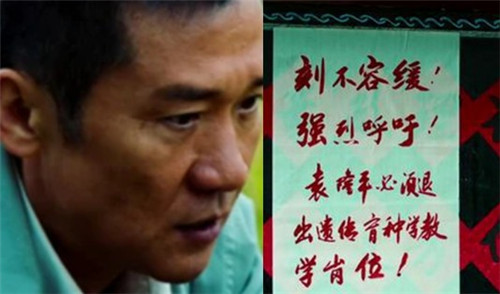 刻不容缓！
强烈呼吁！
袁隆平必须退
出遗传育种学教
学岗位！